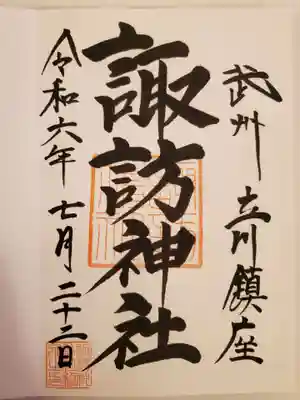 武州 立川鎮座
諏訪神社
令和六年 七月 二十二日